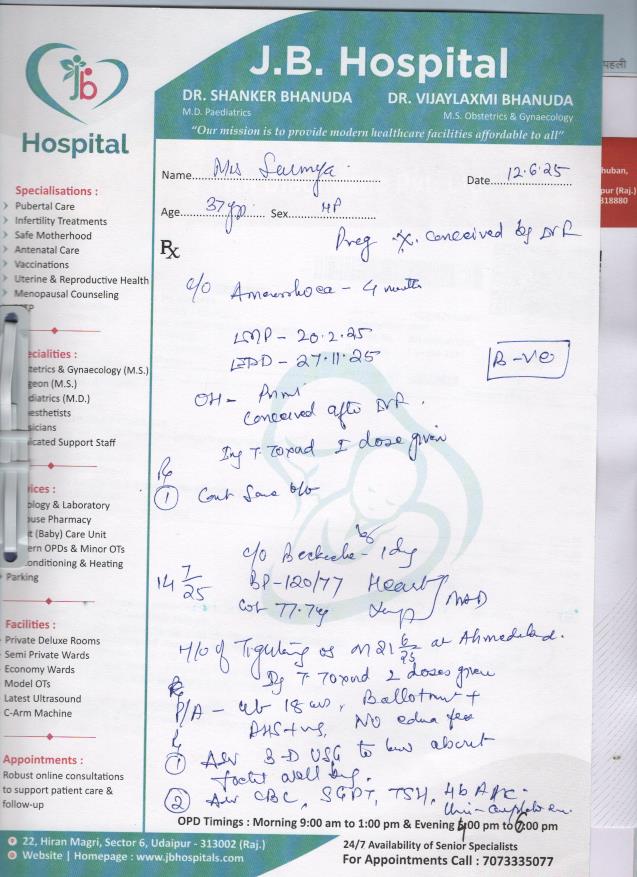 J.B. Hospital
DR. SHANKER BHANUDA
M.D. Paediatrics
DR. VIJAYLAXMI BHANUDA
M.S. Obstetrics & Gynaecology
"Our mission is to provide modern healthcare facilities affordable to all"
Jb
Hospital
पहली
huban,
pur (Raj.)
318880
Name Mrs
Date 12.6.25
Age 37 yr Sex
Rx
Preg conceived by IVF
c/o Amenorrhoea - 4 months
LMP - 20.2.25
EDD - 27.11.25
B-ve
OH - Primi
Conceived after IVF.
Inj T. Toxoid I dose given
Rx
① Cont Same
c/o Backache - 1 day
14 7/25
BP - 120/77 Heart
Wt 77.7 kg NAD
H/o of on 21 6/25 at Ahmedabad.
Inj T Toxoid 2 doses given
P/A - ut 18 ws, Ballotment +
FHS + No edema feet
① Adv 3-D USG to know about
foetal well being.
② Adv CBC, SGPT, TSH, Hb A1c.
Specialisations :
Pubertal Care
Infertility Treatments
Safe Motherhood
Antenatal Care
Vaccinations
Uterine & Reproductive Health
Menopausal Counseling
ecialities :
tetrics & Gynaecology (M.S.)
geon (M.S.)
diatrics (M.D.)
esthetists
sicians
icated Support Staff
ices :
ology & Laboratory
use Pharmacy
t (Baby) Care Unit
ern OPDs & Minor OTs
onditioning & Heating
Parking
Facilities :
Private Deluxe Rooms
Semi Private Wards
Economy Wards
Model OTs
Latest Ultrasound
C-Arm Machine
Appointments :
Robust online consultations
to support patient care &
follow-up
OPD Timings : Morning 9:00 am to 1:00 pm & Evening :00 pm to :00 pm
22, Hiran Magri, Sector 6, Udaipur - 313002 (Raj.)
Website | Homepage : www.jbhospitals.com
24/7 Availability of Senior Specialists
For Appointments Call : 7073335077